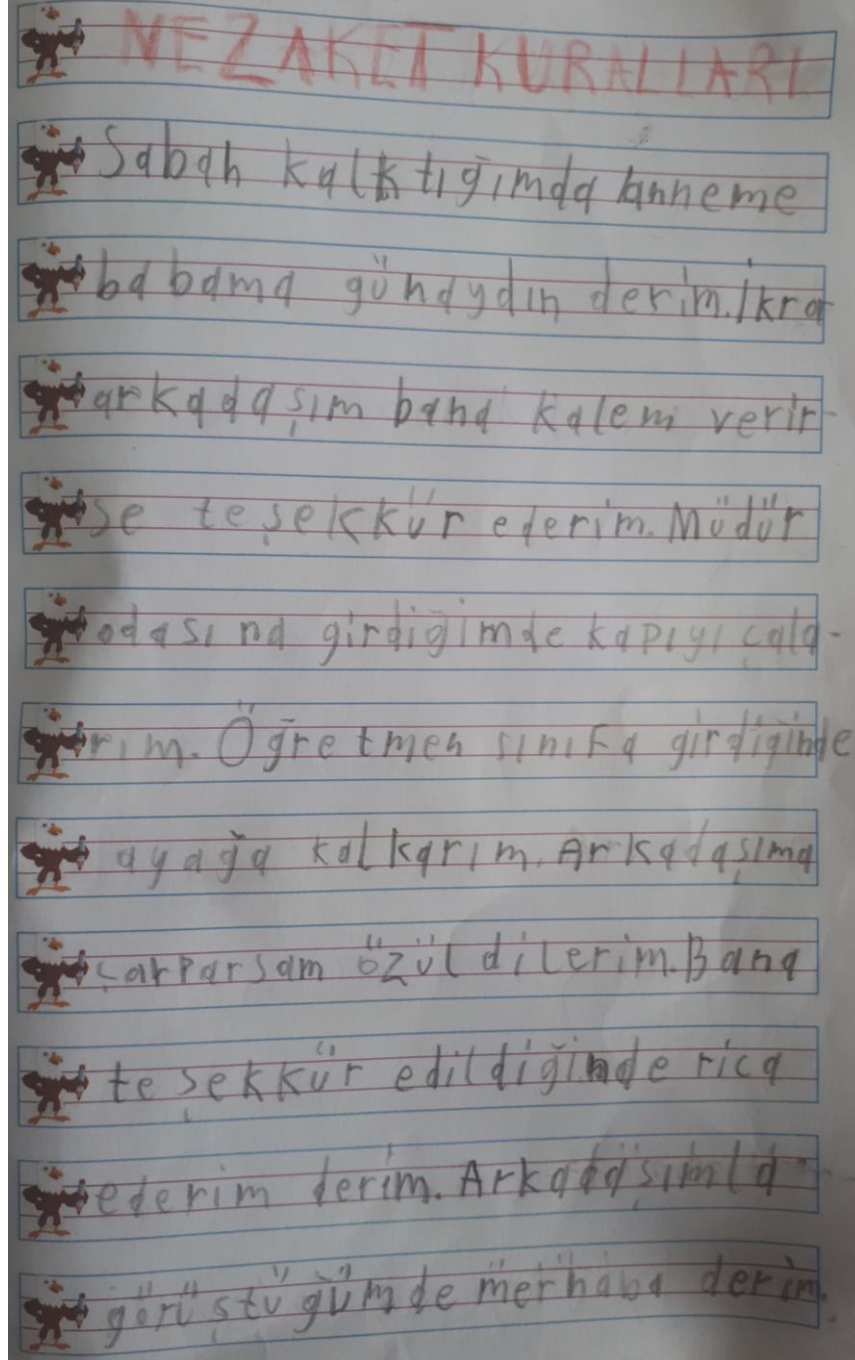 NEZAKET KURALLARI
Sabah kalktığımda anneme
babama günaydın derim. İkra
arkadaşım bana kalem verir-
se teşekkür ederim. Müdür
odasına girdiğimde kapıyı çala-
rım. Öğretmen sınıfa girdiğinde
ayağa kalkarım. Arkadaşıma
çarparsam özül dilerim. Bana
teşekkür edildiğinde rica
ederim derim. Arkadaşımla
görüştüğümde merhaba derim.